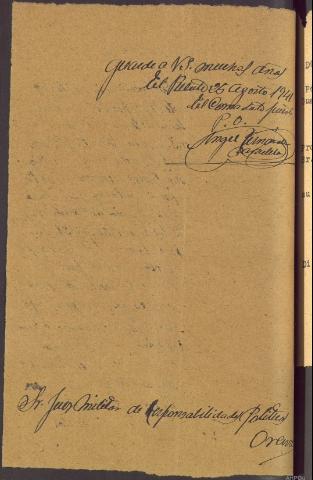 guarde a V.S. muchos años
El Puente 26 Agosto 1941
El Comandante
P. O.
Angel Fernández
Sr. Juez Militar de Responsabilidades Políticas
Orense